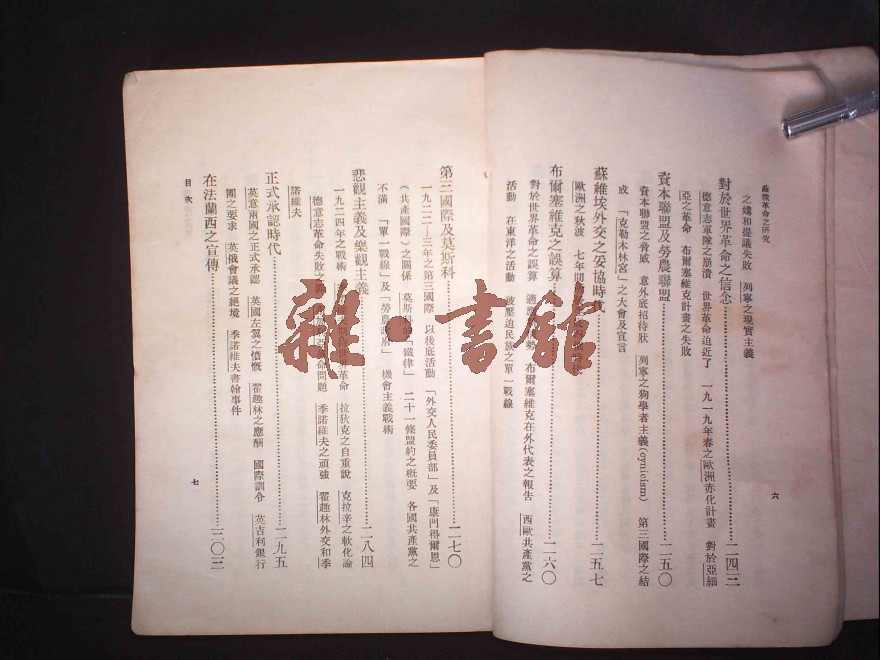 蘇俄革命之研究
之媾和提議失敗　列寧之現實主義
對於世界革命之信念……二四三
德意志軍隊之崩潰　世界革命迫近了　一九一九年春之歐洲赤化計畫　對於亞細
亞之革命　布爾塞維克計畫之失敗
資本聯盟及勞農聯盟……二五〇
資本聯盟之脅威　意外底招待狀　列寧之狗學者主義(cynicism)　第三國際之結
成　「克勒木林宮」之大會及宣言
蘇維埃外交之妥協時代……二五七
歐洲之秋波　七年間
布爾塞維克之誤算……二六〇
對於世界革命之誤算　適應　布爾塞維克在外代表之報告　西歐共產黨之
活動　在東洋之活動　被壓迫民族之單一戰線
六
第三國際及莫斯科……二七〇
一九二二—三年之第三國際　以後底活動　「外交人民委員部」及「康門得爾恩」
(共產國際)之關係　莫斯科「鐵律」　二十一條盟約之概要　各國共產黨之
不滿　「單一戰線」及「勞農政府」　機會主義戰術
悲觀主義及樂觀主義……二八四
一九二四年之戰術　世界革命　拉狄克之自重說　克拉辛之軟化論
德意志革命失敗之　革命問題　季諾維夫之頑強　翟趣林外交和季
諾維夫
正式承認時代……二九五
英意兩國之正式承認　英國左翼之憤慨　翟趣林之應酬　國際訓令　英吉利銀行
團之要求　英俄會議之絕境　季諾維夫書翰事件
在法蘭西之宣傳……三〇三
目次
七
雜·書館